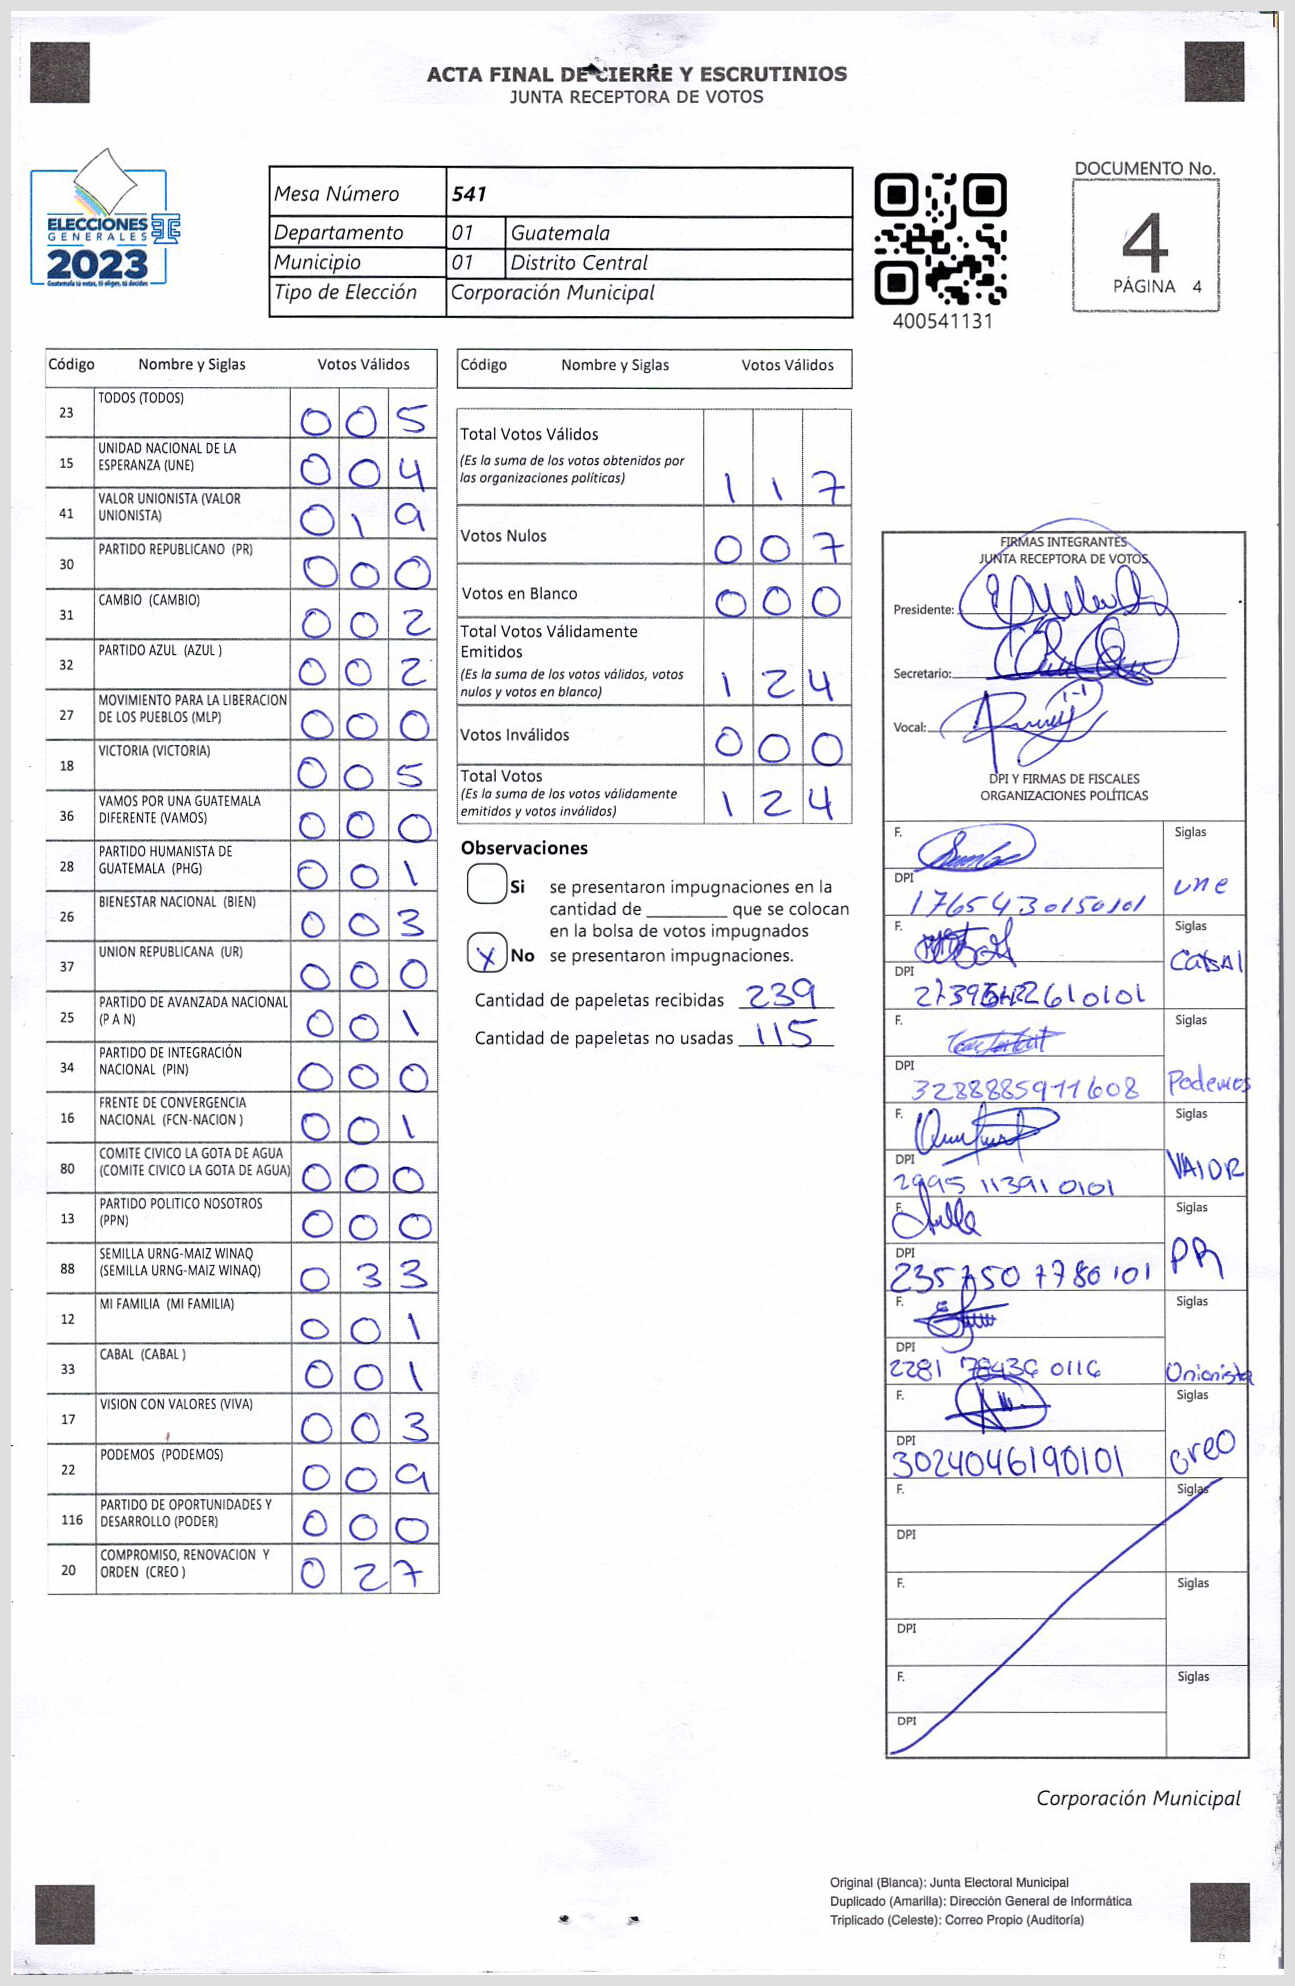 ACTA FINAL DE CIERRE Y ESCRUTINIOS
JUNTA RECEPTORA DE VOTOS
ELECCIONES
GENERALES
2023
Guatemala tú votas, tú eliges, tú decides
Mesa Número 541
Departamento 01 Guatemala
Municipio 01 Distrito Central
Tipo de Elección Corporación Municipal
400541131
DOCUMENTO No.
4
PÁGINA 4
Código Nombre y Siglas Votos Válidos
23 TODOS (TODOS) 0 0 5
15 UNIDAD NACIONAL DE LA ESPERANZA (UNE) 0 0 4
41 VALOR UNIONISTA (VALOR UNIONISTA) 0 1 9
30 PARTIDO REPUBLICANO (PR) 0 0 0
31 CAMBIO (CAMBIO) 0 0 2
32 PARTIDO AZUL (AZUL ) 0 0 2
27 MOVIMIENTO PARA LA LIBERACION DE LOS PUEBLOS (MLP) 0 0 0
18 VICTORIA (VICTORIA) 0 0 5
36 VAMOS POR UNA GUATEMALA DIFERENTE (VAMOS) 0 0 0
28 PARTIDO HUMANISTA DE GUATEMALA (PHG) 0 0 1
26 BIENESTAR NACIONAL (BIEN) 0 0 3
37 UNION REPUBLICANA (UR) 0 0 0
25 PARTIDO DE AVANZADA NACIONAL (P A N) 0 0 1
34 PARTIDO DE INTEGRACIÓN NACIONAL (PIN) 0 0 0
16 FRENTE DE CONVERGENCIA NACIONAL (FCN-NACION ) 0 0 1
80 COMITE CIVICO LA GOTA DE AGUA (COMITE CIVICO LA GOTA DE AGUA) 0 0 0
13 PARTIDO POLITICO NOSOTROS (PPN) 0 0 0
88 SEMILLA URNG-MAIZ WINAQ (SEMILLA URNG-MAIZ WINAQ) 0 3 3
12 MI FAMILIA (MI FAMILIA) 0 0 1
33 CABAL (CABAL ) 0 0 1
17 VISION CON VALORES (VIVA) 0 0 3
22 PODEMOS (PODEMOS) 0 0 9
116 PARTIDO DE OPORTUNIDADES Y DESARROLLO (PODER) 0 0 0
20 COMPROMISO, RENOVACION Y ORDEN (CREO ) 0 2 7
Código Nombre y Siglas Votos Válidos
Total Votos Válidos 1 1 7
(Es la suma de los votos obtenidos por
las organizaciones políticas)
Votos Nulos 0 0 7
Votos en Blanco 0 0 0
Total Votos Válidamente
Emitidos 1 2 4
(Es la suma de los votos válidos, votos
nulos y votos en blanco)
Votos Inválidos 0 0 0
Total Votos 1 2 4
(Es la suma de los votos válidamente
emitidos y votos inválidos)
Observaciones
Si se presentaron impugnaciones en la
cantidad de ________ que se colocan
en la bolsa de votos impugnados
X No se presentaron impugnaciones.
Cantidad de papeletas recibidas 239
Cantidad de papeletas no usadas 115
FIRMAS INTEGRANTES
JUNTA RECEPTORA DE VOTOS
Presidente:
Secretario:
Vocal:
DPI Y FIRMAS DE FISCALES
ORGANIZACIONES POLÍTICAS
F. Siglas
DPI une
1765430150101
F. Siglas
DPI CABAL
F. Siglas
DPI Podemos
3288885911608
F. Siglas
DPI VALOR
2995 11391 0101
F. Siglas
DPI PR
2357507780101
F. Siglas
DPI Unionista
2281 78436 0116
F. Siglas
DPI creo
3024046190101
F. Siglas
DPI
F. Siglas
DPI
F. Siglas
DPI
Corporación Municipal
Original (Blanca): Junta Electoral Municipal
Duplicado (Amarilla): Dirección General de Informática
Triplicado (Celeste): Correo Propio (Auditoría)